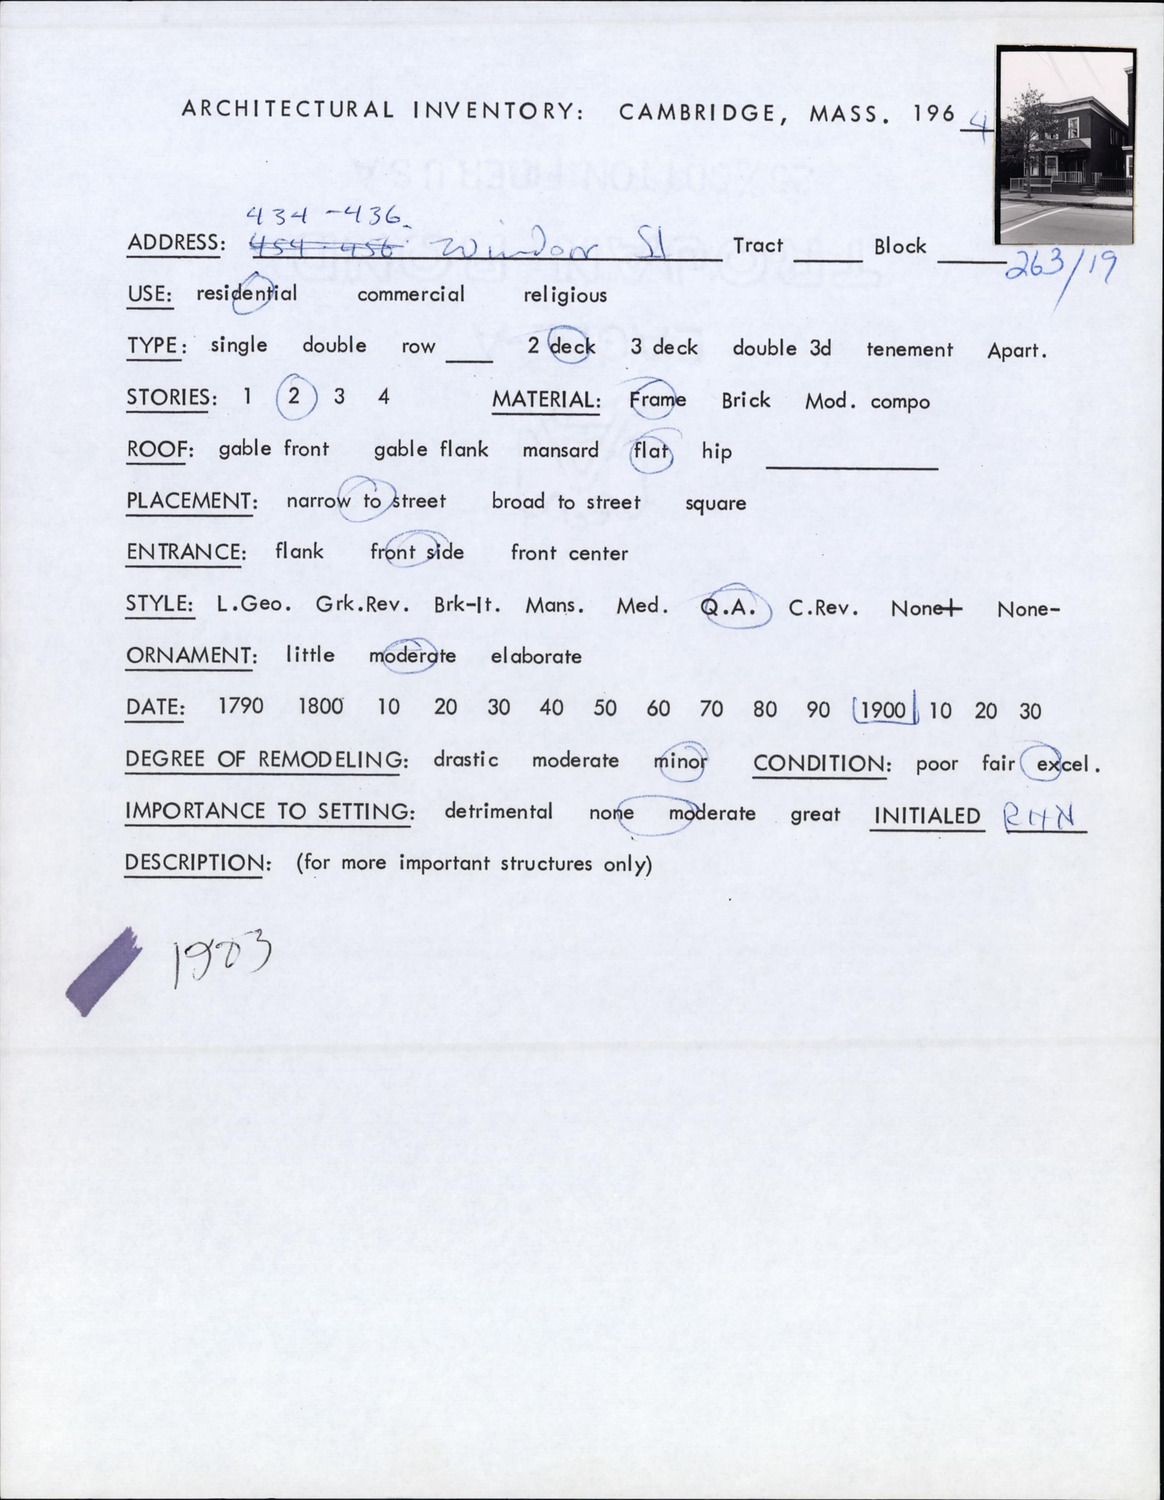 ARCHITECTURAL INVENTORY: CAMBRIDGE, MASS. 1964
434-436
ADDRESS: 454-456 Windsor St Tract Block
263/19
USE: residential commercial religious
TYPE: single double row 2 deck 3 deck double 3d tenement Apart.
STORIES: 1 2 3 4 MATERIAL: Frame Brick Mod. compo
ROOF: gable front gable flank mansard flat hip
PLACEMENT: narrow to street broad to street square
ENTRANCE: flank front side front center
STYLE: L.Geo. Grk.Rev. Brk-It. Mans. Med. Q.A. C.Rev. None+ None-
ORNAMENT: little moderate elaborate
DATE: 1790 1800 10 20 30 40 50 60 70 80 90 1900 10 20 30
DEGREE OF REMODELING: drastic moderate minor CONDITION: poor fair excel.
IMPORTANCE TO SETTING: detrimental none moderate great INITIALED RHN
DESCRIPTION: (for more important structures only)
1903